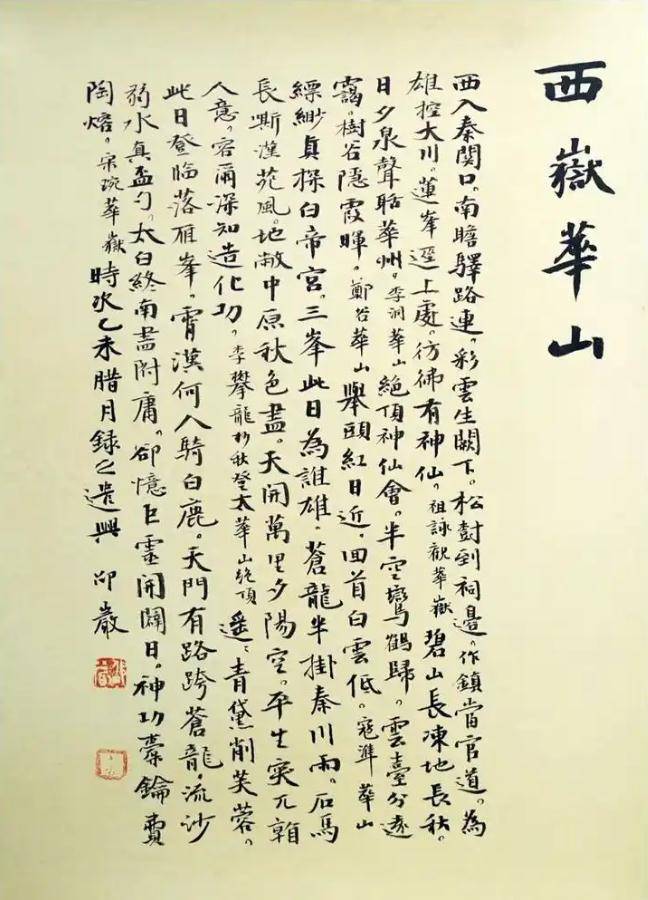 西嶽華山
西入秦関口。南瞻驛路連。彩雲生闕下。松樹到祠邊。作鎮當官道。為
雄控大川。蓮峯逕上處。彷彿有神仙。祖詠觀華嶽 碧山長凍地長秋。
日夕泉聲聒華州。李洞華山 絶頂神仙會。半空鸞鶴歸。雲臺分遠
靄。樹谷隱霞暉。鄭谷華山 舉頭紅日近。回首白雲低。寇準 華山
縹緲真探白帝宮。三峯此日為誰雄。蒼龍半掛秦川雨。石馬
長嘶漢苑風。地敞中原秋色盡。天開萬里夕陽空。平生突兀看
人意。容爾深知造化功。李攀龍杪秋登太華山絶頂 遥々青黛削芙蓉。
此日登臨落雁峯。霄漢何人騎白鹿。天門有路跨蒼龍。流沙
弱水真盃勺。太白終南盡附庸。卻憶巨靈開闢日。神功橐鑰費
陶熔。宋琬華嶽 時次乙未腊月録之遣興 邱巖